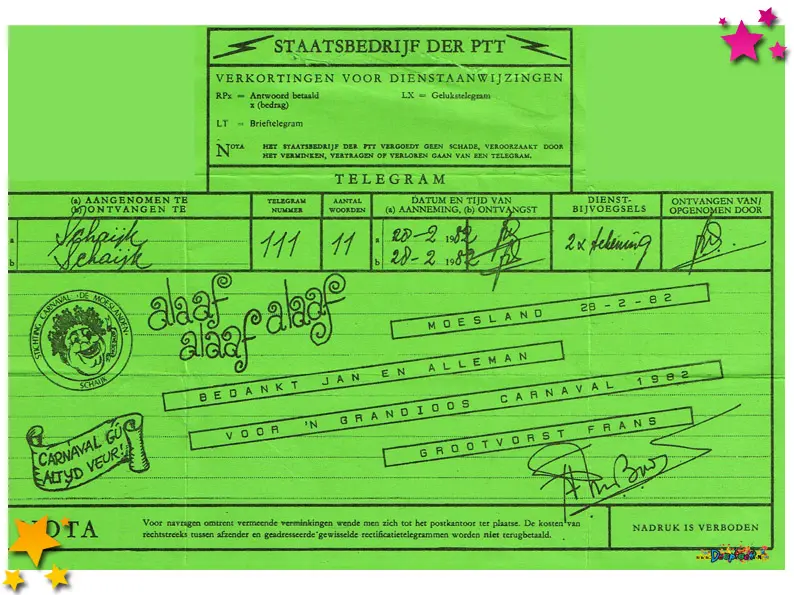 STAATSBEDRIJF DER PTT
VERKORTINGEN VOOR DIENSTAANWIJZINGEN
RPx = Antwoord betaald
x (bedrag)
LX = Gelukstelegram
LT = Brieftelegram
NOTA HET STAATSBEDRIJF DER PTT VERGOEDT GEEN SCHADE, VEROORZAAKT DOOR
HET VERMINKEN, VERTRAGEN OF VERLOREN GAAN VAN EEN TELEGRAM.
TELEGRAM
(a) AANGENOMEN TE
(b) ONTVANGEN TE
TELEGRAM
NUMMER
AANTAL
WOORDEN
DATUM EN TIJD VAN
(a) AANNEMING, (b) ONTVANGST
DIENST-
BIJVOEGSELS
ONTVANGEN VAN/
OPGENOMEN DOOR
a Schaijk
b Schaijk
111
11
a 28-2 1982
b 28-2 1982
2x tekening
alaaf
alaaf alaaf
STICHTING CARNAVAL "DE MOESLANDEN"
SCHAIJK
MOESLAND 28-2-82
BEDANKT JAN EN ALLEMAN
VOOR 'N GRANDIOOS CARNAVAL 1982
GROOTVORST FRANS
CARNAVAL GÚ
ALTYD VEUR!
NOTA
Voor navragen omtrent vermeende verminkingen wende men zich tot het postkantoor ter plaatse. De kosten van
rechtstreeks tussen afzender en geadresseerde gewisselde rectificatietelegrammen worden niet terugbetaald.
NADRUK IS VERBODEN